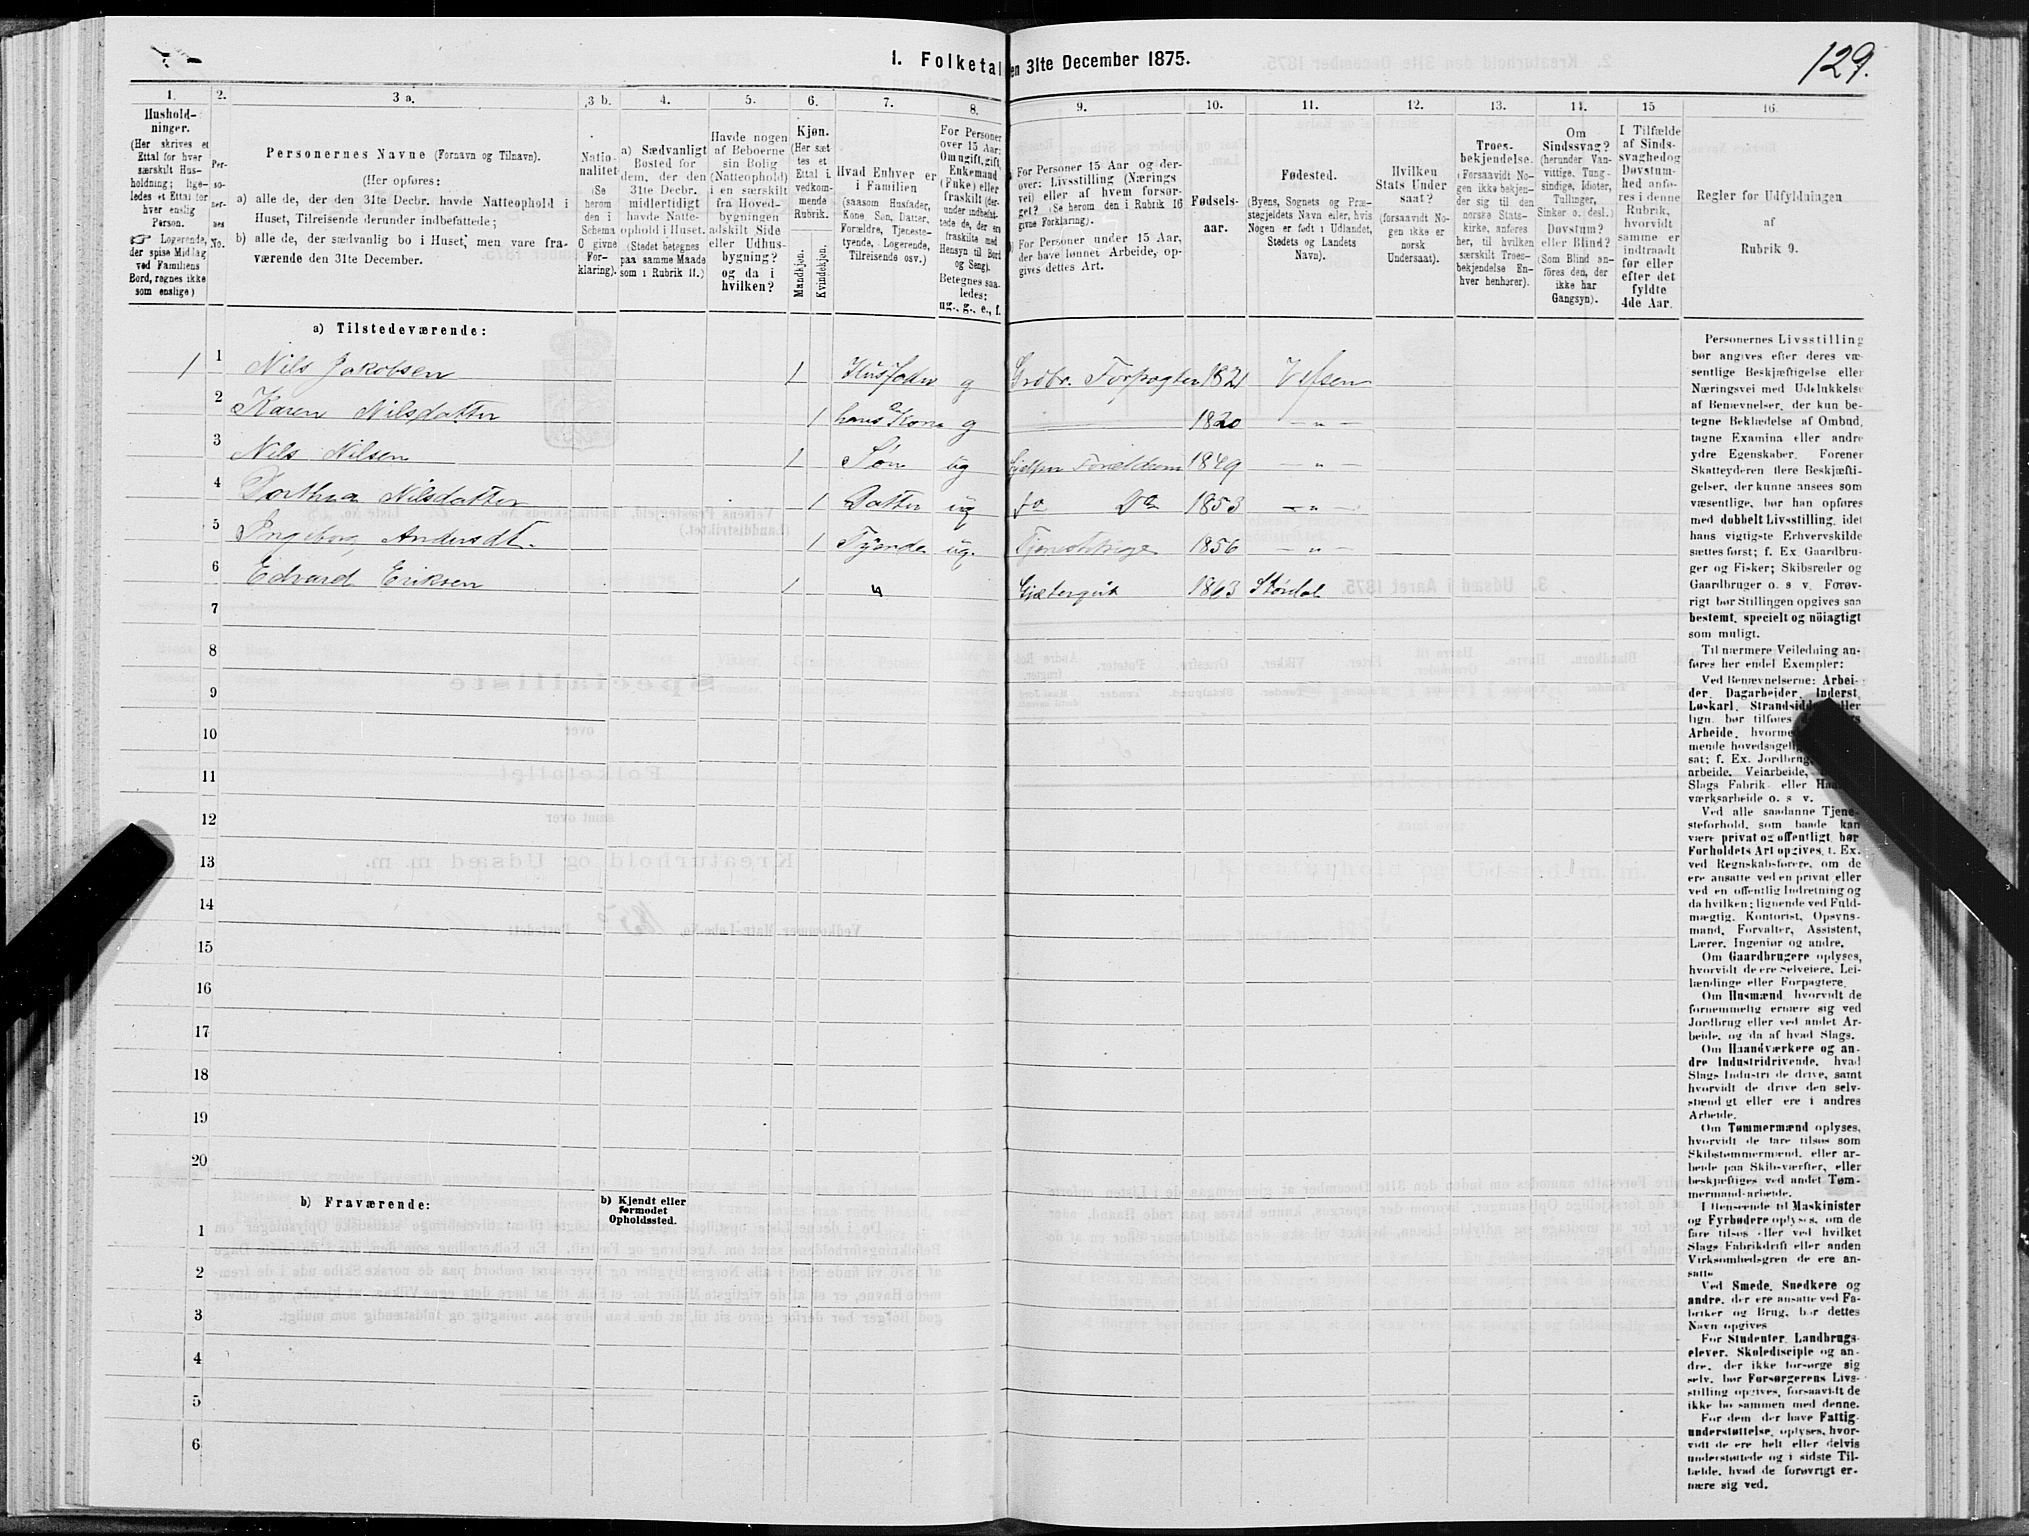 1. Folketal
en 31te December 1875.
129.
1.
Hushold-
ninger.
(Her skrives et
Ettal for hver
særskilt Hus-
holdning; lige-
ledes et Ettal for
hver enslig
Person.
☞ Logerende,
der spise Middag
ved Familiens
Bord, regnes ikke
som enslige)
2.
Per-
so-
ner-
nes
No.
3 a.
Personernes Navne (Fornavn og Tilnavn).
(Her opføres:
a) alle de, der den 31te Decbr. havde Natteophold i
Huset, Tilreisende derunder indbefattede;
b) alle de, der sædvanlig bo i Huset, men vare fra-
værende den 31te December.
3 b.
Natio-
nalitet
(Se
herom
den i
Schema
O givne
For-
klaring).
4.
a) Sædvanligt
Bosted for
dem, der den
31te Decbr.
midlertidigt
havde Natte-
ophold i Huset.
(Stedet betegnes
paa samme Maade
som i Rubrik 11.)
5.
Havde nogen
af Beboerne
sin Bolig
(Natteophold)
i en særskilt
fra Hoved-
bygningen
adskilt Side
eller Udhus-
bygning?
og da i
hvilken?
6.
Kjøn.
(Her sæt
tes et
Ettal i
vedkom-
mende
Rubrik.
Mandkjøn.
Kvindekjøn.
7.
Hvad Enhver er
i Familien
(saasom Husfader,
Kone Søn, Datter,
Forældre, Tjeneste-
tyende, Logerende,
Tilreisende osv.)
8.
For Personer
over 15 Aar:
Om ugift, gift,
Enkemand
(Enke) eller
fraskilt (der-
under indbefat-
tede de, der ere
fraskilte med
Hensyn til Bord
og Seng).
Betegnes saa-
ledes:
ug., g., e., f.
9.
For Personer 15 Aar og der-
over: Livsstilling (Nærings
vei) eller af hvem forsør-
get? (Se herom den i Rubrik 16
givne Forklaring).
For Personer under 15 Aar,
der have lønnet Arbeide, op-
gives dettes Art.
10.
Fødsels-
aar.
11.
Fødested.
(Byens, Sognets og Præ-
stegjeldets Navn eller, hvis
Nogen er født i Udlandet,
Stedets og Landets
Navn).
12.
Hvilken
Stats Under
saat?
(forsaavidt No-
gen ikke er
norsk
Undersaat).
13.
Troes-
bekjendelse.
(Forsaavidt No-
gen ikke bekjen-
der sig til den
norske Stats-
kirke, anføres
her, til hvilken
særskilt Troes-
bekjendelse En-
hver henhører).
14.
Om
Sindssvag?
(herunder Van-
vittige, Tung-
sindige, Idioter,
Tullinger,
Sinker o. desl.)
Døvstum?
eller Blind?
(Som Blind an-
føres den, der
ikke har
Gangsyn).
15
I Tilfælde
af Sinds-
svaghedog
Døvstum-
hed anfø-
res i denne
Rubrik,
hvorvidt
samme er
indtraadt
før eller
efter det
fyldte
4de Aar.
16.
Regler for Udfyldningen
af
Rubrik 9.
a) Tilstedeværende:
1 1 Nils Jakobsen 1 Husfader g Grdbr. Forpagter 1821 Vefsen
2 Karen Nilsdatter 1 hans Kone g 1820 — " —
3 Nils Nilsen 1 Søn ug Forældrene 1849 — " —
4 Dorthea Nilsdatter 1 Datter ug do Do 1853 — " —
5 Ingeborg Andersdt. 1 Tyende ug. Tjenestepige 1856 — " —
6 Edvard Eriksen 1 " Gjætergut 1863 Størdal
7
8
9
10
11
12
13
14
15
16
17
18
19
20
b) Fraværende:
b) Kjendt eller
formodet
Opholdssted.
1
2
3
4
5
6
Personernes Livsstilling
bør angives efter deres væ-
sentlige Beskjæftigelse eller
Næringsvei med Udelukkelse
af Benævnelser, der kun be-
tegne Beklædelse af Ombud,
tagne Examina eller andre
ydre Egenskaber. Forener
Skatteyderen flere Beskjæfti-
gelser, der kunne ansees som
væsentlige, bør han opføres
med dobbelt Livsstilling, idet
hans vigtigste Erhvervskilde
sættes først; f. Ex Gaardbru-
ger og Fisker; Skibsreder og
Gaardbruger o. s v. Forøv-
rigt bør Stillingen opgives saa
bestemt, specielt og nöiagtigt
som muligt.
Til nærmere Veiledning an-
føres her endel Exempler:
Ved Benævnelserne: Arbei-
der, Dagarbeider, Inderst,
Løskarl, Strandsidder eller
lign. bør tilføres
Arbeide, hvorme
mende hovedsagelig
sat; f. Ex. Jordbrug,
arbeide, Veiarbeide,
Slags Fabrik- eller
værksarbeide o. s v.
Ved alle saadanne Tjene-
steforhold, som baade kan
være privat og offentligt, bør
Forholdets Art opgives, f. Ex.
ved Regnskabsførere, om de
ere ansatte ved en privat eller
ved en offentlig Indretning og
da hvilken; lignende ved Fuld-
mægtig, Kontorist, Opsyns-
mand, Forvalter, Assistent,
Lærer, Ingeniør og andre.
Om Gaardbrugere oplyses,
hvorvidt de ere Selveiere, Lei-
lændinge eller Forpagtere.
Om Husmænd, hvorvidt de
fornemmelig ernære sig ved
Jordbrug eller ved andet Ar-
beide, og da af hvad Slags.
Om Haandværkere og an-
dre Industridrivende, hvad
Slags Industri de drive, samt
hvorvidt de drive den selv-
stændigt eller ere i andres
Arbeide.
Om Tømmermænd oplyses,
hvorvidt de fare tilsøs som
Skibstømmermænd, eller ar-
beide paa Skibsværfter, eller
beskjæftiges ved andet Tøm-
mermandsarbeide.
I Henseende til Maskinister
og Fyrbødere oplyses, om de
fare tilsøs eller ved hvilket
Slags Fabrikdrift eller anden
Virksomhedsgren de ere an-
satte
Ved Smede, Snedkere og
andre, der ere ansatte ved Fa-
briker og Brug, bør dettes
Navn opgives
For Studenter, Landbrugs-
elever, Skoledisciple og an-
dre, der ikke forsørge sig
selv, bør Forsørgerens Livs-
stilling opgives, forsaavidt de
ikke bo sammen med denne.
For dem, der have Fattig-
understøttelse, oplyses, hvor-
vidt de ere helt eller delvis
understøttede og i sidste Til-
fælde, hvad de forøvrigt er-
nære sig ved.